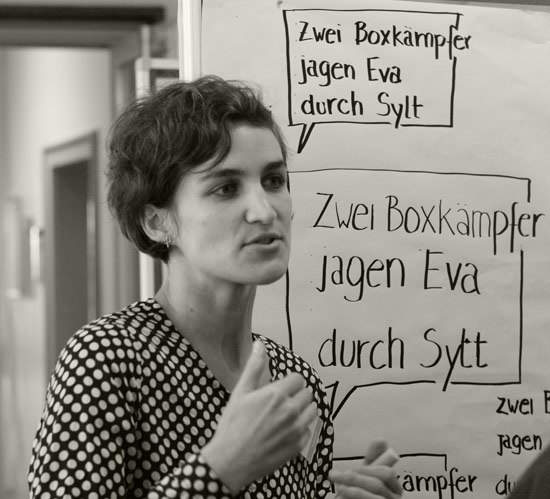 Zwei Boxkämpfer
jagen Eva
durch Sylt
Zwei Boxkämpfer
jagen Eva
durch Sytt
zwei B
jagen
du
kämpfer